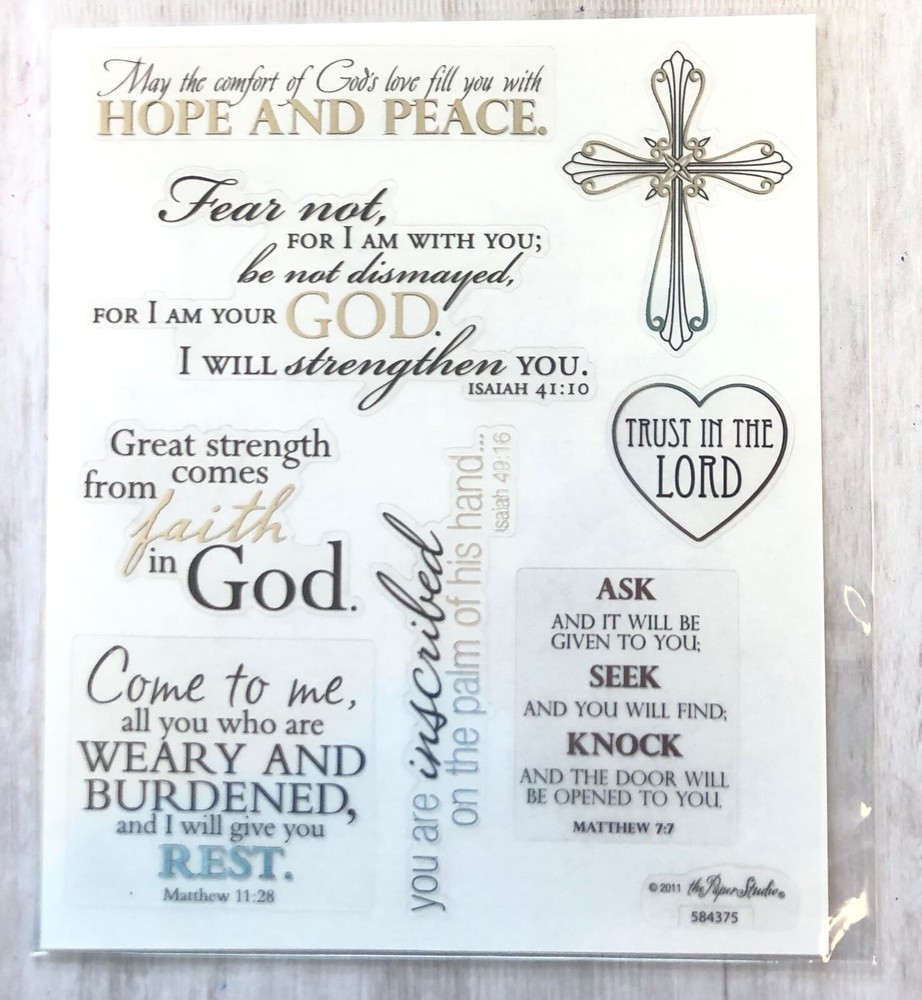 May the comfort of God's love fill you with
HOPE AND PEACE.
Fear not,
FOR I AM WITH YOU;
be not dismayed,
FOR I AM YOUR GOD.
I WILL strengthen YOU.
ISAIAH 41:10
TRUST IN THE
LORD
Great strength
comes
from
faith
in
God.
you are inscribed
on the palm of his hand...
Isaiah 49:16
ASK
AND IT WILL BE
GIVEN TO YOU;
SEEK
AND YOU WILL FIND;
KNOCK
AND THE DOOR WILL
BE OPENED TO YOU.
MATTHEW 7:7
Come to me,
all you who are
WEARY AND
BURDENED,
and I will give you
REST.
Matthew 11:28
© 2011 the Paper Studio®
584375